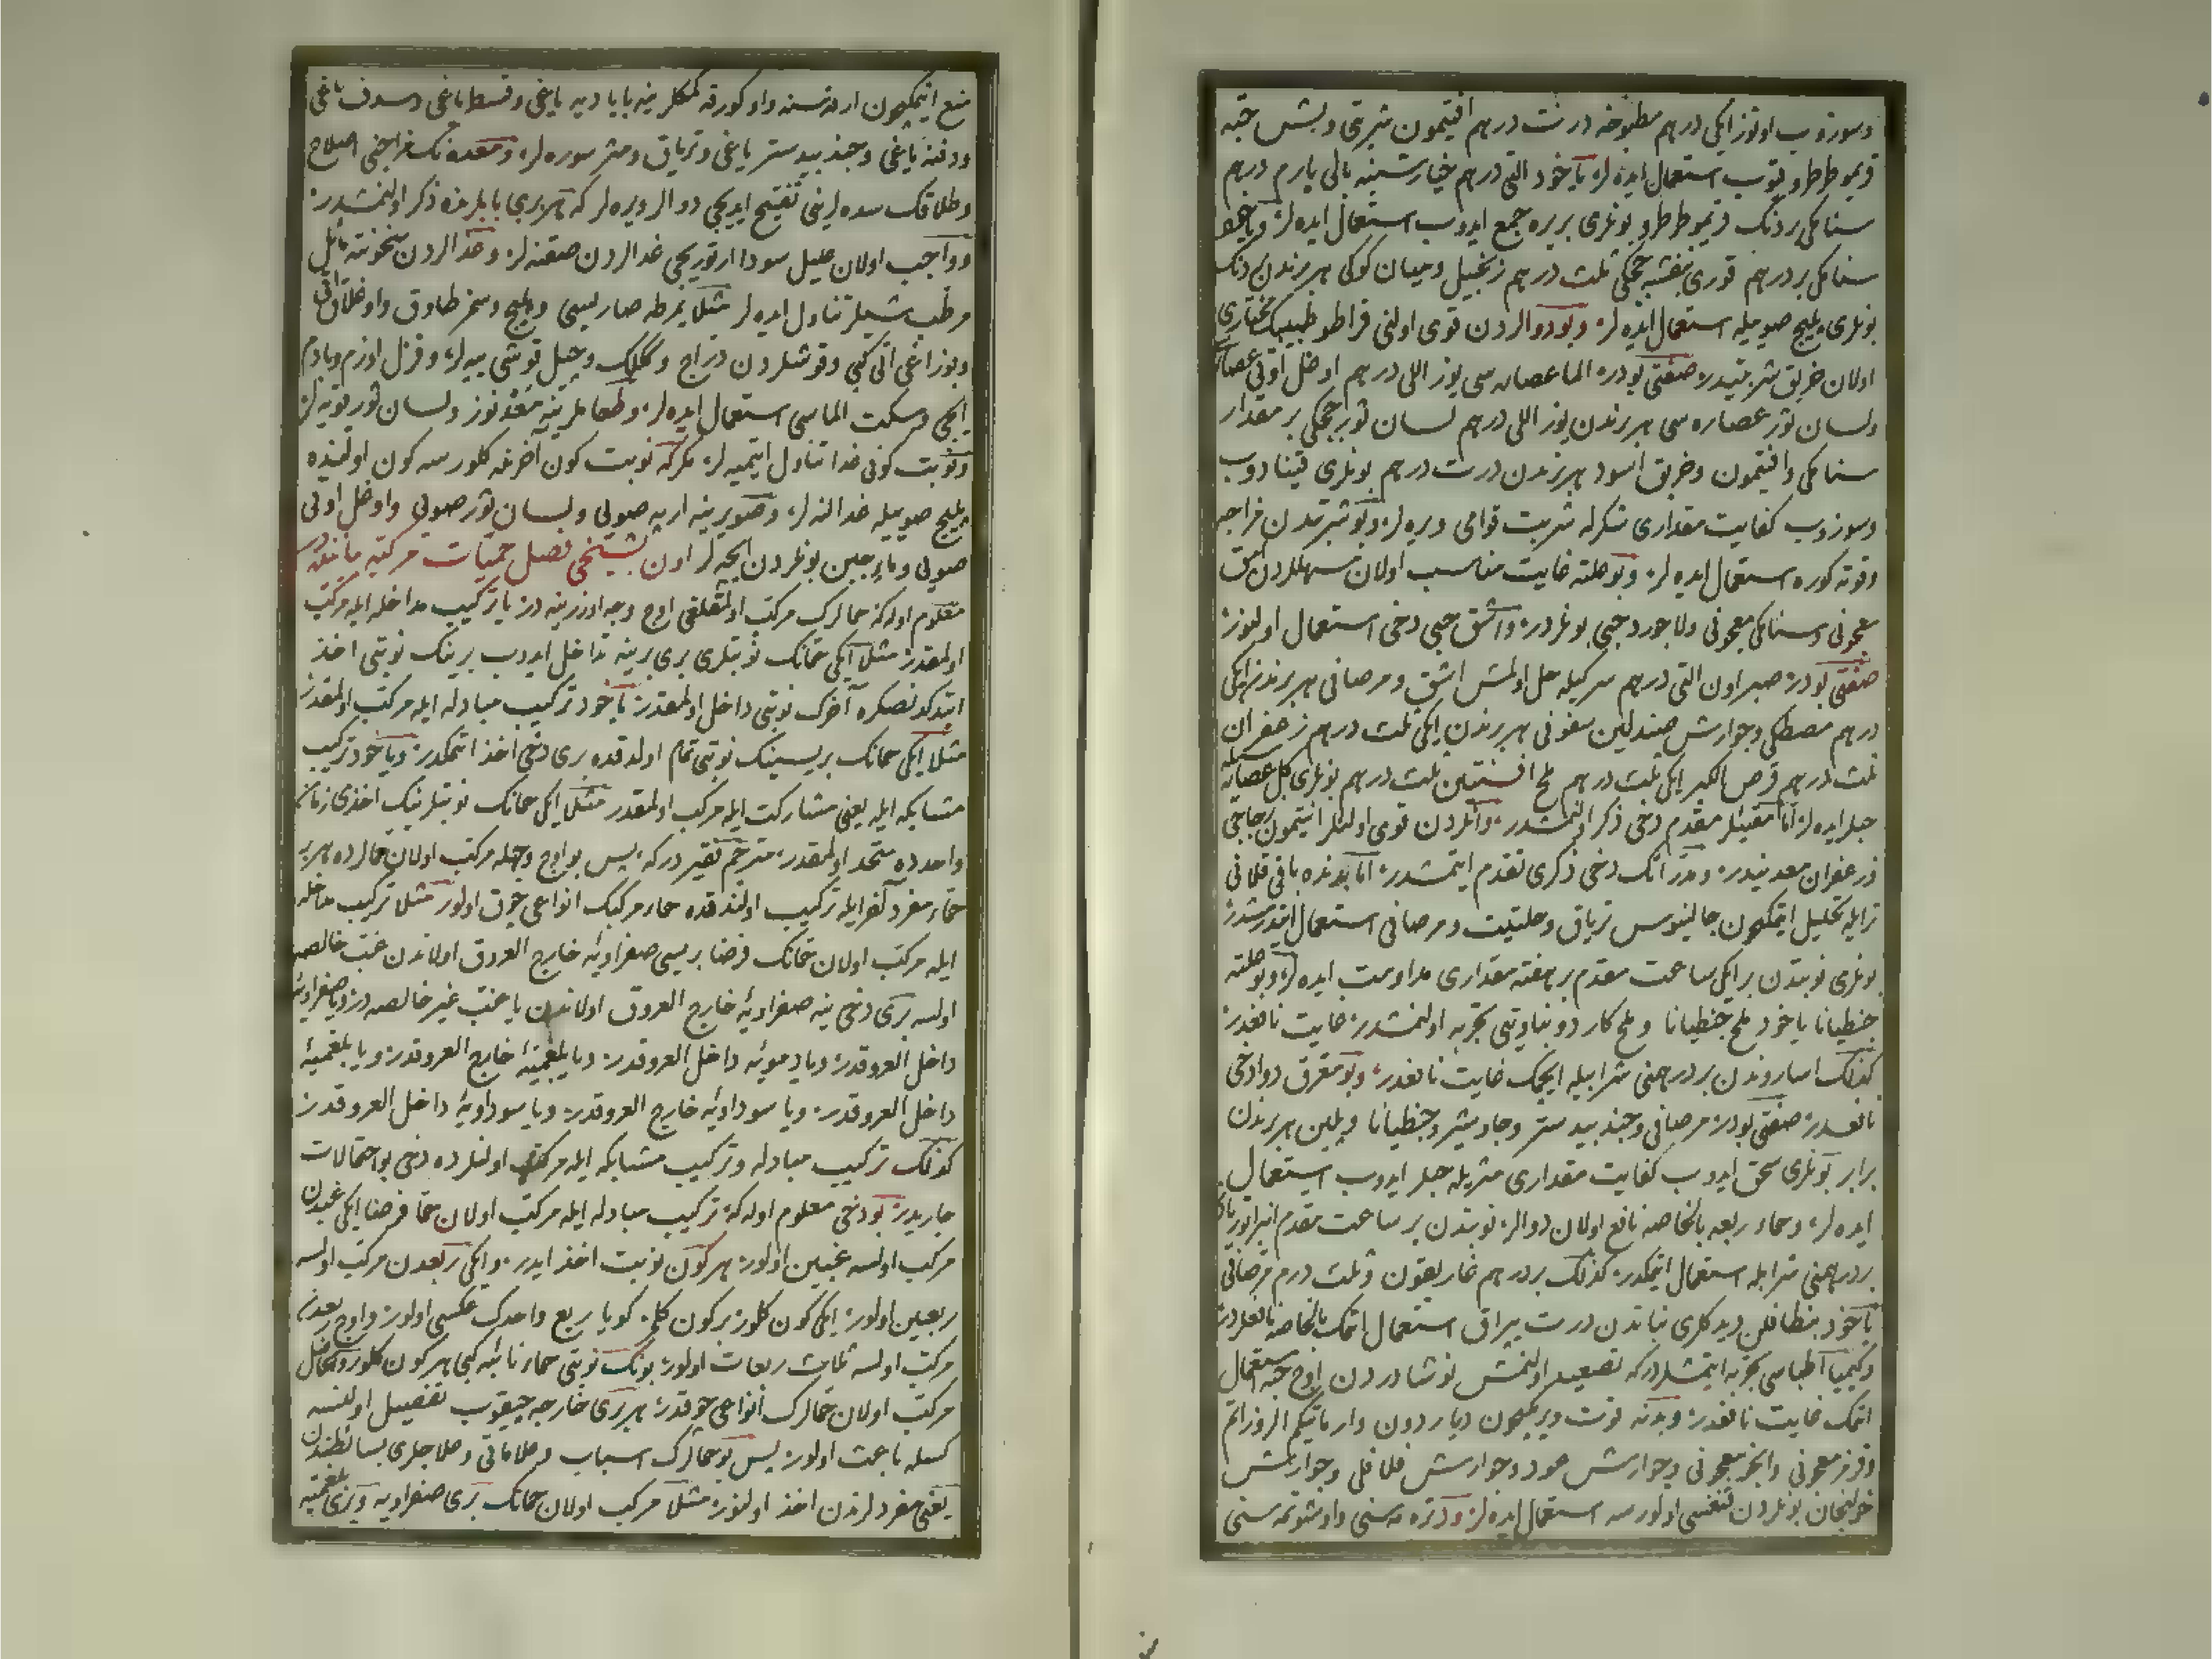 وسوزوب اوتوز ایکی درهم مطبوخه درت درهم افتیمون شربتی و بش حبه
قریموطرطرو قیوب استعمال ایده لر یاخود التی درهم خیارشنبه بالی یارم درهم
سنامکی بر دنک قریموطرطرو بونلری بریره جمع ایدوب استعمال ایده لر ویاخود
سنامکی بر درهم قوری بنفشه چیچکی ثلث درهم زنجبیل ومیان کوکی هر برندن بر دنک
بونلری پلیج صویله استعمال ایده لر وبو دوالردن قوی اولنی قراطو طبیبک مختاری
اولان خربق شربتیدر صفتی بودر الما عصاره سی یوز اللی درهم اوغل اوتی عصاره
ولسان ثور عصاره سی هر برندن یوز اللی درهم لسان ثور چیچکی بر مقدار
سنامکی وافتیمون وخربق اسود هر برندن درت درهم بونلری قینادوب
وسوزوب کفایت مقداری شکرله شربت قوامی ویره لر وبو شربتدن مزاجه
وقوته کوره استعمال ایده لر وبو علته غایت مناسب اولان مسهللردن
معجونی وسنامکی معجونی ولاجورد حبی بونلردر واشق حبی دخی استعمال اولنور
صفتی بودر صبر اون التی درهم سرکیله حل اولمش اشق ومر صافی هر برندن ایکی
درهم مصطکی وجوارش صندلین سفوفی هر برندن ایکی ثلث درهم زعفران
ثلث درهم قرص الکبر ایکی ثلث درهم ملح افسنتین ثلث درهم بونلری کل عصاره سیله
حبلر ایده لر اما مقیئلر مقدم دخی ذکر اولنمشدر وانلردن قوی اولنلر انتیمون زجاجی
وزعفران معدنیدر ومدراتک دخی ذکری تقدم ایتمشدر اما بدنده باقی قلانی
ترایله تحلیل ایتمکچون جالینوس تریاق وحلتیت ومر صافی استعمال ایتدرمشدر
بونلری نوبتدن بر ایکی ساعت مقدم بر هفته مقداری مداومت ایده لر وبو علته
جنطیانا یاخود ملح جنطیانا وملح کاردوبنیادتی تجربه اولنمشدر غایت نافعدر
کذلک اساروندن بر درهمنی شرابیله ایچمک غایت نافعدر وبو معرق دوادخی
نافعدر صفتی بودر مر صافی وجندبیدستر وجاوشیر وجنطیانا وپلین هر برندن
برابر بونلری سحق ایدوب کفایت مقداری مثریله حبلر ایدوب استعمال
ایده لر وحماء ربعه بالخاصه نافع اولان دوالر نوبتدن بر ساعت مقدم
بر درهمنی شرابله استعمال ایتمکدر کذلک بر درهم غاریقون وثلث درم مر صافی
یاخود بنطافلن دیدکلری نباتدن درت یپراق استعمال ایتمک بالخاصه نافعلردر
وکیمیا اطباسی تجربه ایتمشلردر که تصعید اولنمش نوشادردن اوچ حبه استعمال
ایتمک غایت نافعدر وبدنه قوت ویرمکچون دیاردون وارماتیکم الروزاتم
وقرمز معجونی وانجره معجونی وجوارش عود وجوارش فلافلی وجوارش
خولنجان بونلردن قنغیسی اولورسه استعمال ایده لر ولرزه سنی واوشوتمه سنی
منع ایتمکچون ارقه سنه واوکورقه کمکلرینه بابادیه یاغی وقسط یاغی وسداب یاغی
ودفنه یاغی وجندبیدستر یاغی وتریاق ومثر سوره لر ومعده نک مزاجنی اصلاح
وطلاقک سده لرینی تفتیح ایدیجی دوالر ویره لر که هر بری بابلرنده ذکر اولنمشدر
وواجب اولان علیل سودا ارتوریجی غدالردن صقنه لر وغدالردن سخونته مائل
مرطب شیلر تناول ایده لر مثلا یمرطه صاریسی وپلیج وسمز طاوق واوغلاق اتی
وبوزاغی اتی کبی وقوشلردن دراج وکلک وچیل قوشی ییه لر وقزل اوزم وبادم
ایچی ومسکت الماسی استعمال ایده لر وطعاملرینه مغدنوز ولسان ثور قویه لر
ونوبت کونی غدا تناول ایتمیه لر مکرکه نوبت کون آخرنده کلورسه کون اولنده
پلیج صوییله غدالنه لر وصویرینه ارپه صویی ولسان ثور صویی واوغل اوتی
صویی وماء جبین بونلردن ایچه لر اون بشنجی فصل حمیات مرکبه بیاننده در
معلوم اوله که حمالرک مرکب اولمقلغی اوچ وجه اوزرینه در یا ترکیب مداخله ایله مرکب
اولمقدر مثلا ایکی حمانک نوبتلری بری برینه تداخل ایدوب برینک نوبتی اخذ
ایتدکدنصکره آخرک نوبتی داخل اولمقدر یاخود ترکیب مبادله ایله مرکب اولمقدر
مثلا ایکی حمانک بریسینک نوبتی تمام اولدقده بری دخی اخذ ایتمکدر ویاخود ترکیب
مشابکه ایله یعنی مشارکت ایله مرکب اولمقدر مثلا ایکی حمانک نوبتلرینک اخذی زمان
واحدده متحد اولمقدر مترجم فقیر درکه پس بو اوچ وجهله مرکب اولان حمالرده هر بر
حماء مفرد آخر ایله ترکیب اولندقده حماء مرکبک انواعی چوق اولور مثلا ترکیب مداخله
ایله مرکب اولان حمانک فرضا بریسی صفراویه خارج العروق اولاندن غب خالصه
اولسه بری دخی ینه صفراویه خارج العروق اولاندن یا غب غیر خالصه در ویا صفراویه
داخل العروقدر ویا دمویه داخل العروقدر ویا بلغمیه خارج العروقدر ویا بلغمیه
داخل العروقدر ویا سوداویه خارج العروقدر ویا سوداویه داخل العروقدر
کذلک ترکیب مبادله وترکیب مشابکه ایله مرکب اولنلرده دخی بو احتمالات
جاریدر بودخی معلوم اوله که ترکیب مبادله ایله مرکب اولان حما فرضا ایکی غبدن
مرکب اولسه غبین اولور هرکون نوبت اخذ ایدر وایکی ربعدن مرکب اولسه
ربعین اولور ایکی کون کلور برکون کلمز کویا ربع واحدک عکسی اولور واوچ ربعدن
مرکب اولسه ثلاث ربعات اولور بونک نوبتی حماء نائبه کبی هرکون کلور والحاصل
مرکب اولان حمالرک انواعی چوقدر هر بری خارجه چیقوب تفصیل اولنسه
کسله باعث اولور پس بو حمالرک اسباب وعلاماتی وعلاجلری بسائطندن
یعنی مفردلرندن اخذ اولنور مثلا مرکب اولان حمانک بری صفراویه وبری بلغمیه